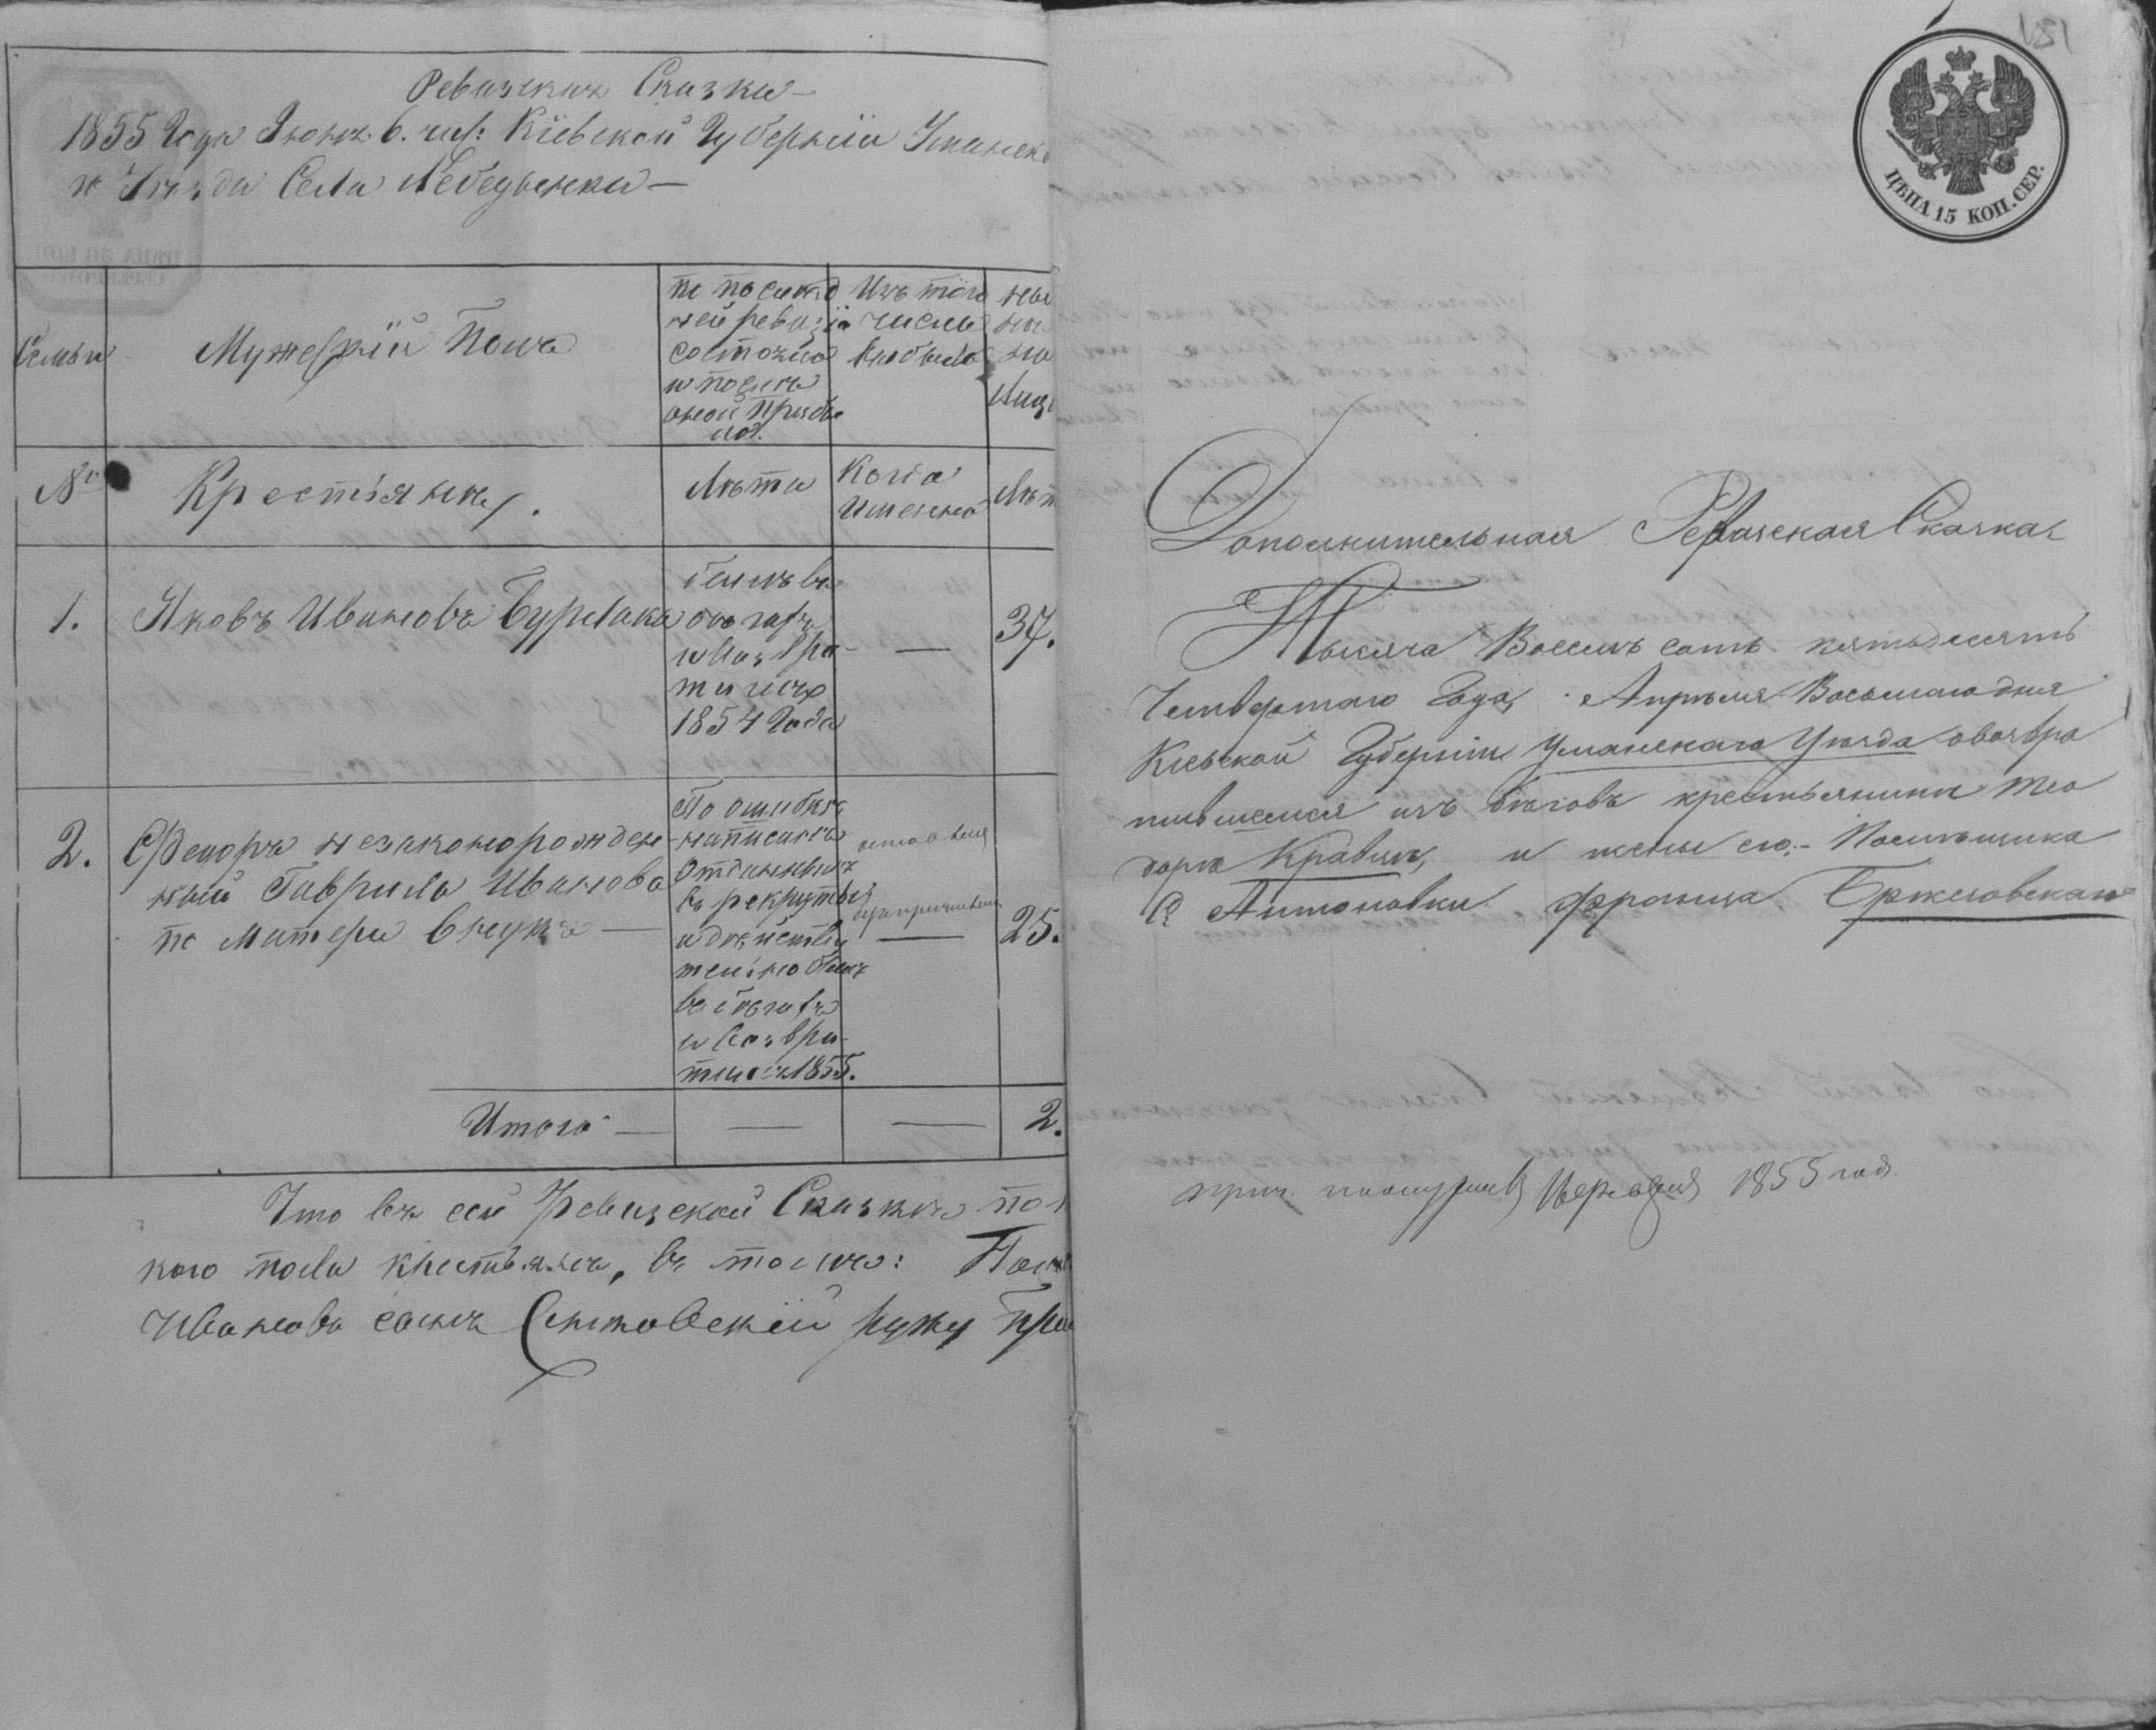 Ревизская Сказка
1855 Года Июня 6. чис: Кіевской Губерніи Уманска
го Уѣзда Села Лебедынки
Семьи
Мужескій Полъ
По послѣд
ней ревизіи
состояло
и послѣ
оной прибы
ло.
Изъ того
числа
выбыло
Лица
№
Крестьяне.
Лѣта
Когда
Именно
Лѣт
1.
Яковъ Ивановъ Бурлака
былъ въ
бѣгахъ
и возвра-
тился
1854 Года
37.
2.
Федоръ незаконорожден-
ный Гаврила Иванова
по Матери внукъ
По ошибкѣ
написанъ
отданнымъ
въ рекруты
и действи
тельно былъ
въ бѣгахъ
и возвра-
тился 1855.
25.
Итого
2.
Что въ сей Ревизской Сказкѣ по
кого пола крестьянъ, въ томъ:
Иванова сынъ руку при
151
ЦѢНА 15 КОП. СЕР.
Дополнительная Ревизская Сказка
Тысяча Восемь сотъ пятьдесятъ
Четвертаго Года, Апрѣля Восьмаго дня
Кіевской Губерніи Уманскаго Уѣзда о возвра
тившемся изъ бѣговъ крестьянинѣ Тео
дорѣ Кравцѣ, и жены его:- Помѣщика
С. Антоновки Франца Бржезовскаго
1855 год.